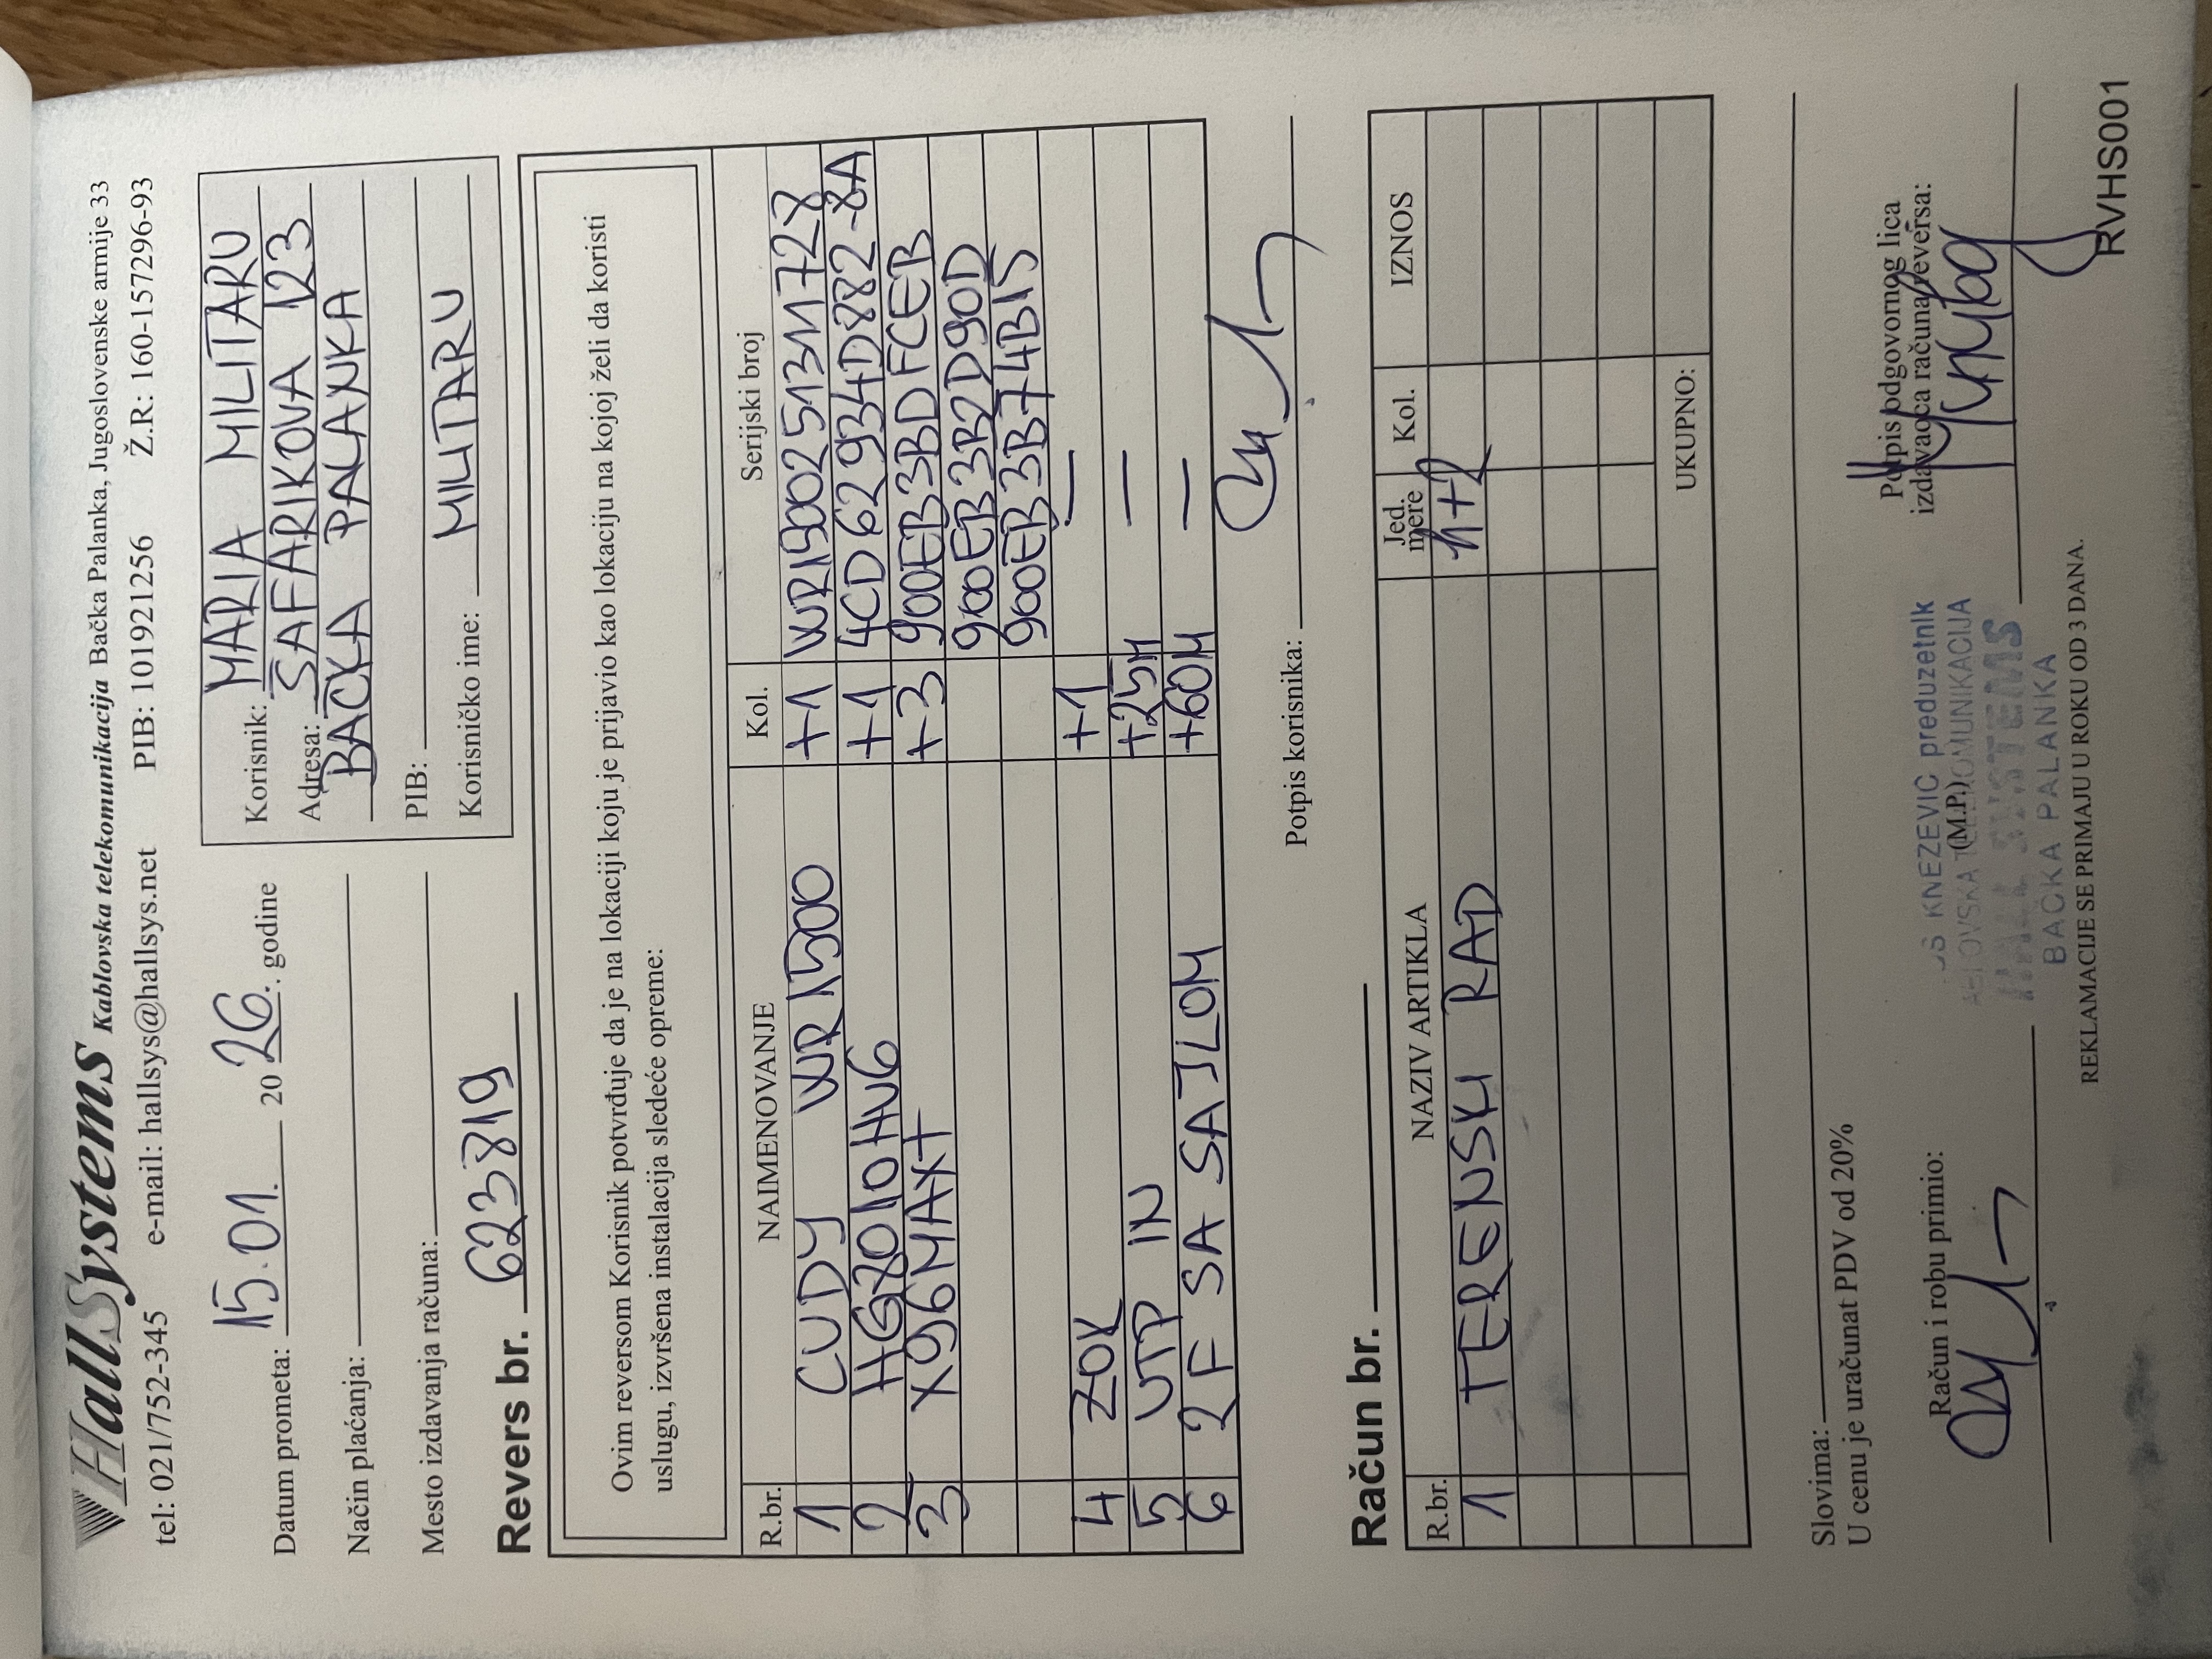 HallSystems Kablovska telekomunikacija Bačka Palanka, Jugoslovenske armije 33
tel: 021/752-345 e-mail: hallsys@hallsys.net PIB: 101921256 Ž.R: 160-157296-93
Datum prometa: 15.01. 2026. godine
Način plaćanja:
Mesto izdavanja računa:
Korisnik: MARIA MILITARU
Adresa: SAFARIKOVA 123
BACKA PALANKA
PIB:
Korisničko ime: MILITARU
Revers br. 623819
Ovim reversom Korisnik potvrđuje da je na lokaciji koju je prijavio kao lokaciju na kojoj želi da koristi
uslugu, izvršena instalacija sledeće opreme:
R.br. NAIMENOVANJE Kol. Serijski broj
1 CUDY WR1500 +1 WR15002513M1728
2 HG7010HV6 +1 4CD62934D882-8A
3 X96MAX+ +3 900EB3BDFCEB
900EB3B2D90D
900EB3B74B15
4 ZOK +1 —
5 UTP IN +25M —
6 2F SA SAJLOM +60M —
Potpis korisnika:
Račun br.
R.br. NAZIV ARTIKLA Jed. mere Kol. IZNOS
1 TERENSKI RAD h+2
UKUPNO:
Slovima:
U cenu je uračunat PDV od 20%
Račun i robu primio:
(M.P.)
Potpis odgovornog lica
izdavaoca računa/reversa:
KNEZEVIC preduzetnik
TELEKOMUNIKACIJA
BACKA PALANKA
REKLAMACIJE SE PRIMAJU U ROKU OD 3 DANA.
RVHS001